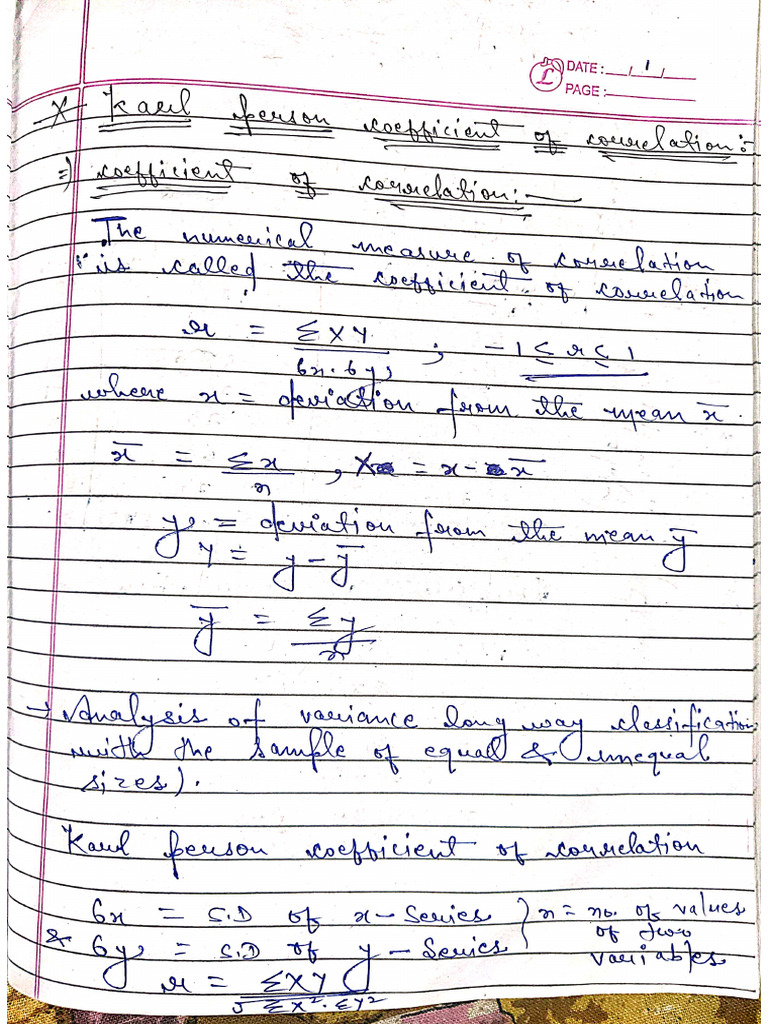 DATE: / /
PAGE:
x Karl person coefficient of correlation:-
⇒ coefficient of correlation:-
The numerical measure of correlation
is called the coefficient of correlation
r = ΣXY / 6x.6y ; -1 ≤ r ≤ 1
where x = deviation from the mean x̄.
x̄ = Σx / n , X = x - x̄
y = deviation from the mean ȳ
Y = y - ȳ
ȳ = Σy / n
→ Analysis of variance (ong way classification
with the sample of equal & unequal
sizes).
Karl person coefficient of correlation
6x = S.D of x-series } n = no. of values
& 6y = S.D of y-series of two
variables
r = ΣXY / √ΣX².ΣY²